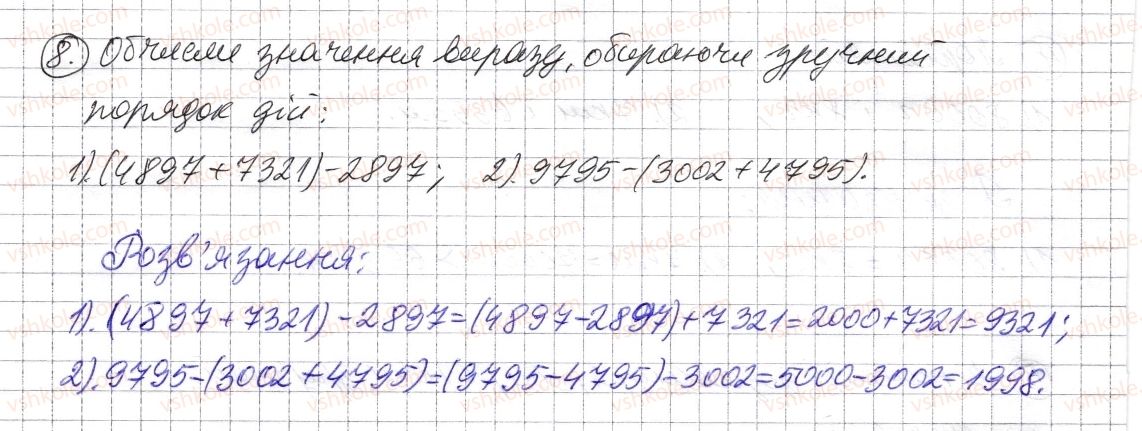 8. Обчисли значення виразу, обираючи зручний
порядок дій:
1). (4897+7321)-2897; 2). 9795-(3002+4795).
Розв'язання:
1). (4897+7321)-2897=(4897-2897)+7321=2000+7321=9321;
2). 9795-(3002+4795)=(9795-4795)-3002=5000-3002=1998.